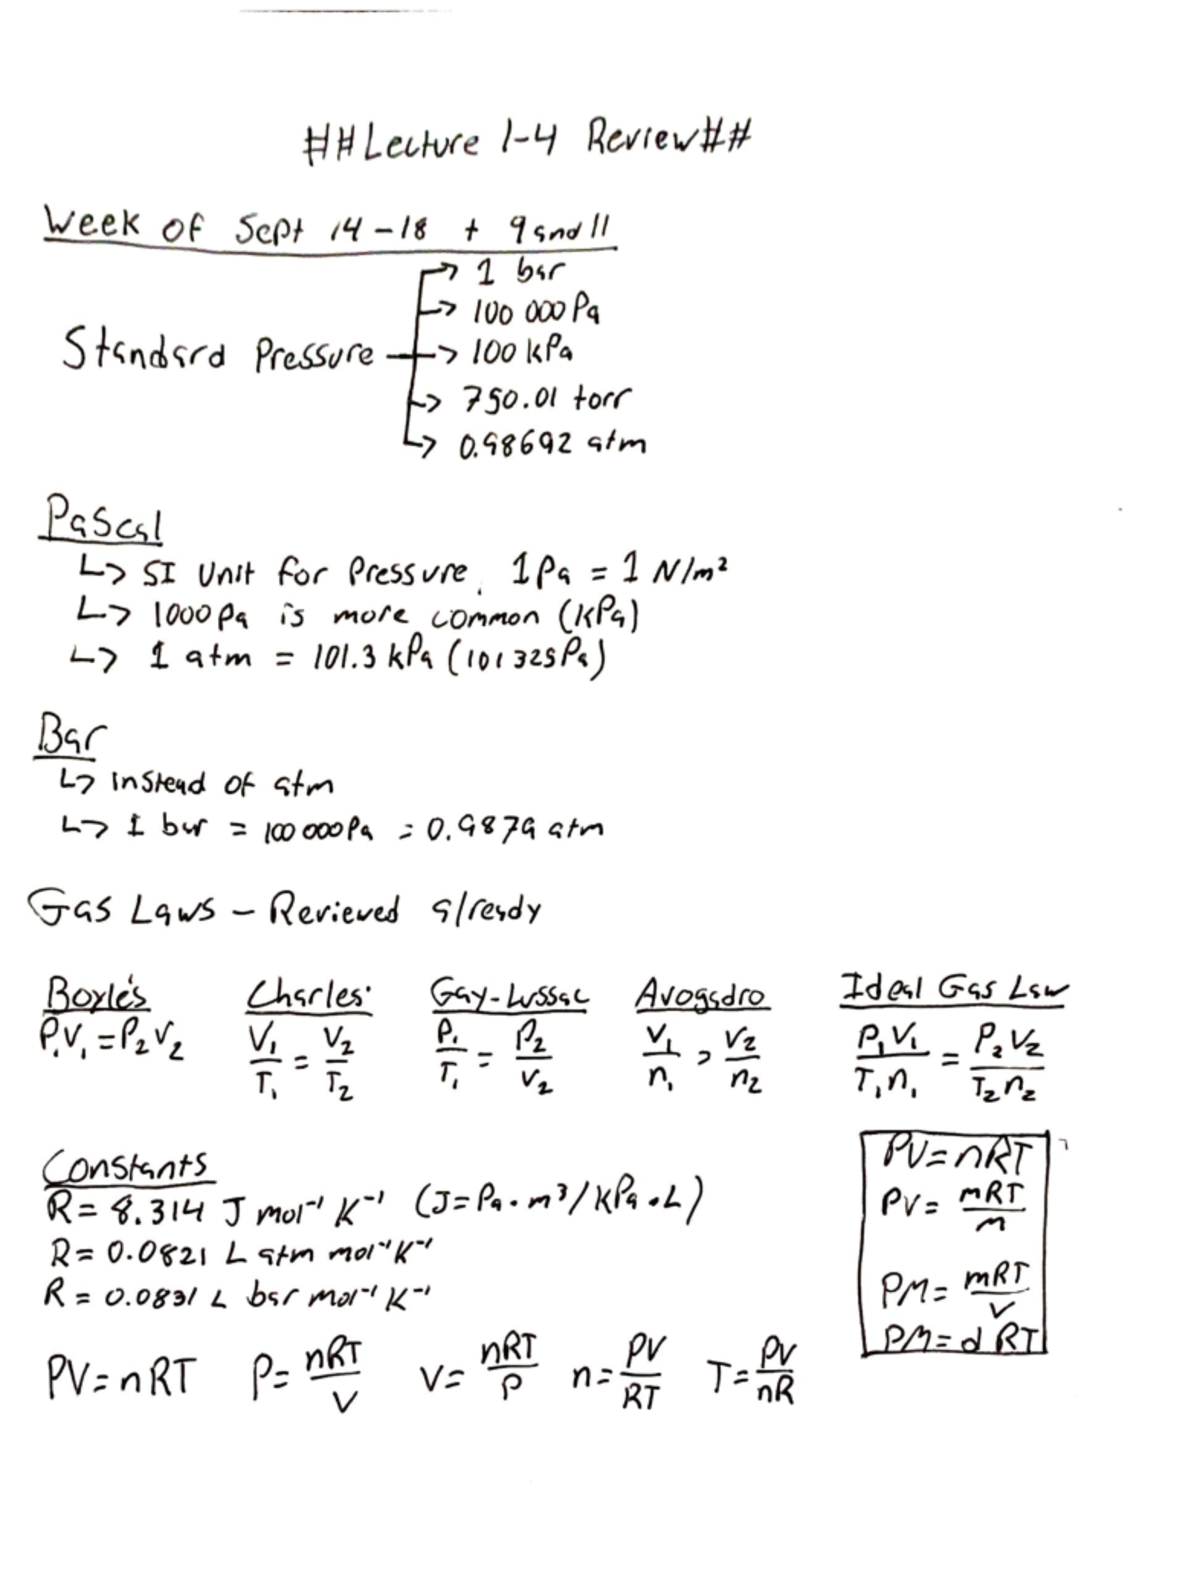 ##Lecture 1-4 Review##
Week of Sept 14-18 + 9 and 11
Standard Pressure
→ 1 bar
→ 100 000 Pa
→ 100 kPa
→ 750.01 torr
→ 0.98692 atm
Pascal
↳ SI Unit for Pressure, 1 Pa = 1 N/m²
↳ 1000 Pa is more common (kPa)
↳ 1 atm = 101.3 kPa (101325Pa)
Bar
↳ instead of atm
↳ 1 bar = 100 000 Pa = 0.9879 atm
Gas Laws - Revieved already
Boyle's Charles' Gay-Lussac Avogadro Ideal Gas Law
P₁V₁ = P₂V₂ V₁/T₁ = V₂/T₂ P₁/T₁ = P₂/V₂ V₁/n₁ = V₂/n₂ P₁V₁/T₁n₁ = P₂V₂/T₂n₂
Constants
R = 8.314 J mol⁻¹ K⁻¹ (J = Pa·m³/kPa·L)
R = 0.0821 L atm mol⁻¹ K⁻¹
R = 0.0831 L bar mol⁻¹ K⁻¹
PV = nRT
PV = mRT/M
PM = mRT/V
PM = d RT
PV = nRT P = nRT/V V = nRT/P n = PV/RT T = PV/nR